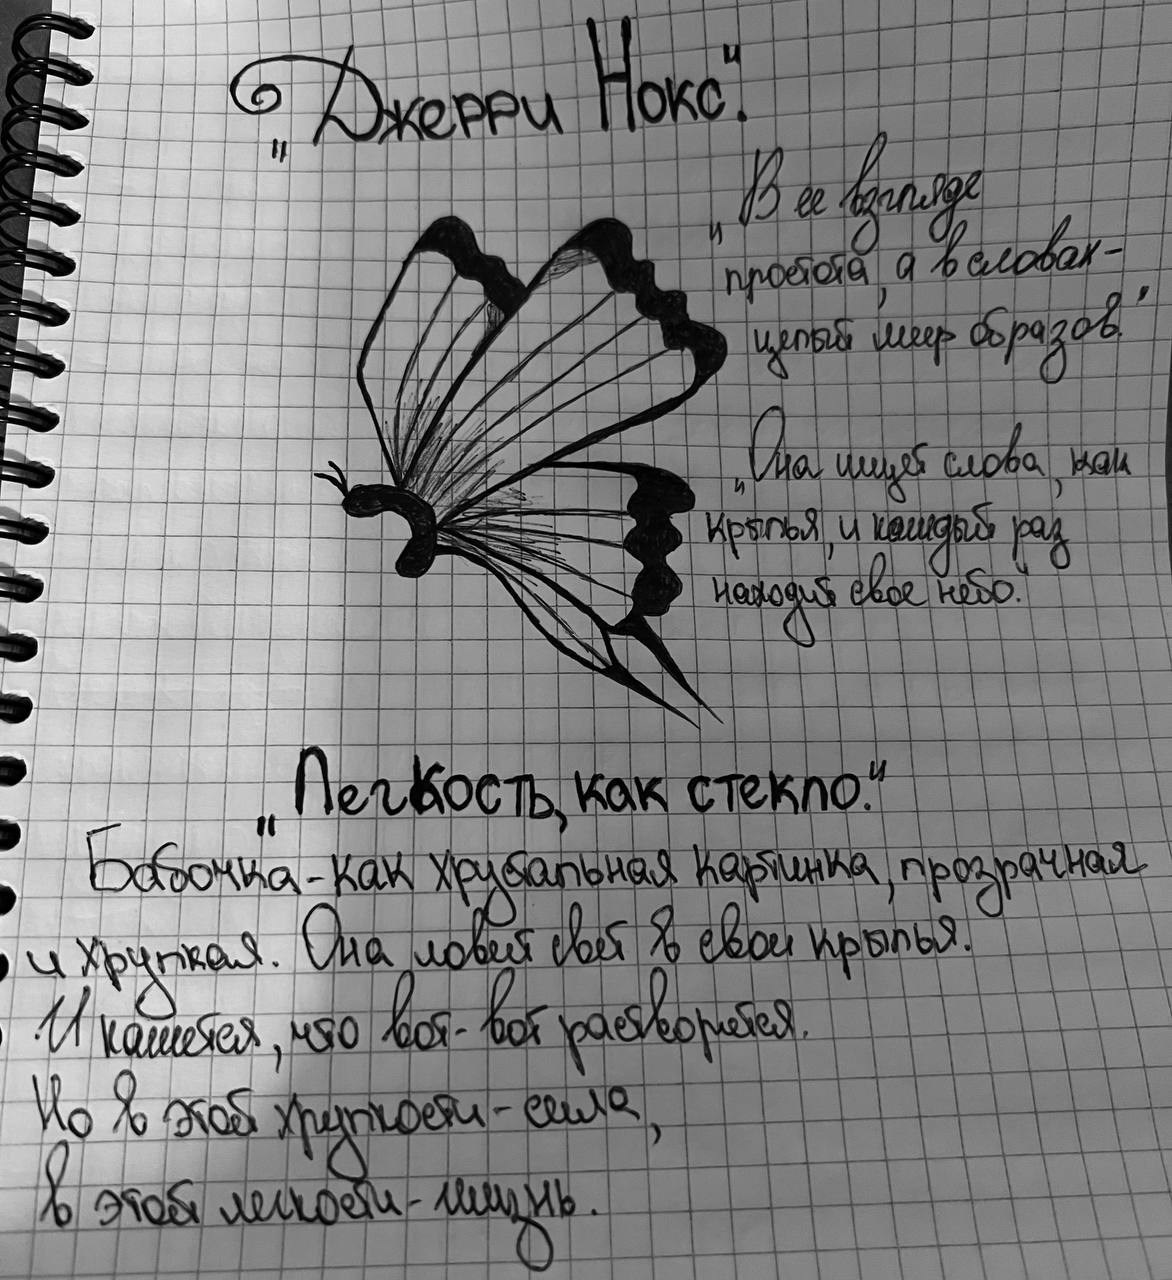 „Джерри Нокс".
„В ее взгляде
простота, а в словах -
целый мир образов."
„Она ищет слова, как
крылья, и каждый раз
находит свое небо."
„Легкость, как стекло."
Бабочка - как хрустальная картинка, прозрачная
и хрупкая. Она ловит свет в свои крылья.
И кажется, что вот-вот растворится.
Но в этой хрупкости - сила,
в этой легкости - жизнь.